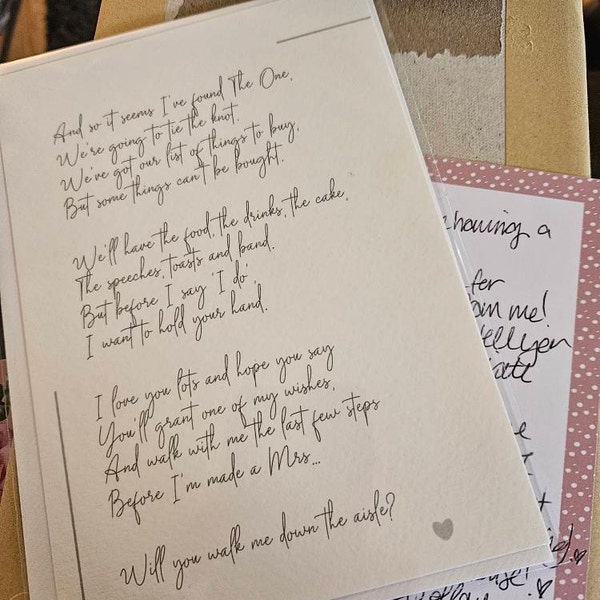 And so it seems I've found The One,
We're going to tie the knot.
We've got our list of things to buy,
But some things can't be bought.
We'll have the food, the drinks, the cake,
The speeches, toasts and band,
But before I say 'I do',
I want to hold your hand.
I love you lots and hope you say
You'll grant one of my wishes,
And walk with me the last few steps
Before I'm made a Mrs...
Will you walk me down the aisle?
a
me!